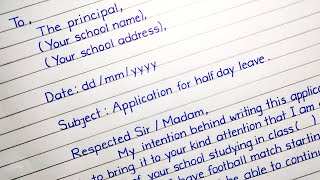 To,
The principal,
(Your school name),
(Your school address),
Date: dd/mm/yyyy
Subject: Application for half day leave.
Respected Sir / Madam,
My intention behind writing this applica
to bring it to your kind attention that I am a
of your school studying in class( )
have football match starting
be able to continu